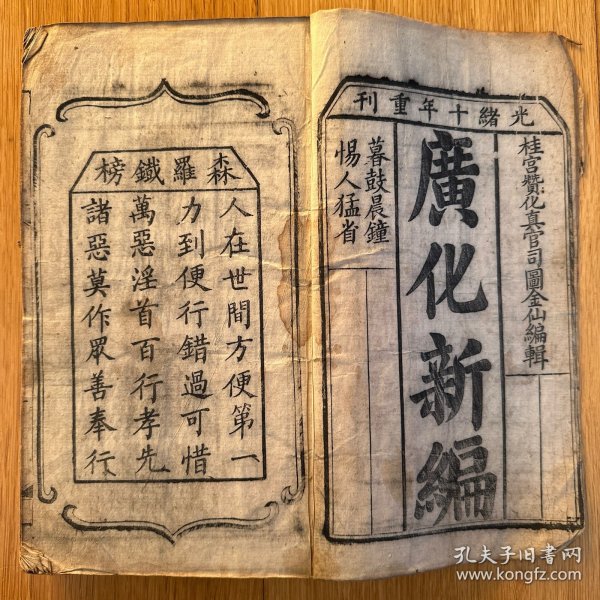 光緒十年重刊
桂宮贊化真官司圖金仙編輯
廣化新編
暮鼓晨鐘
惕人猛省
森羅鐵榜
人在世間方便第一
力到便行錯過可惜
萬惡淫首百行孝先
諸惡莫作眾善奉行
孔夫子旧书网
www.kongfz.com